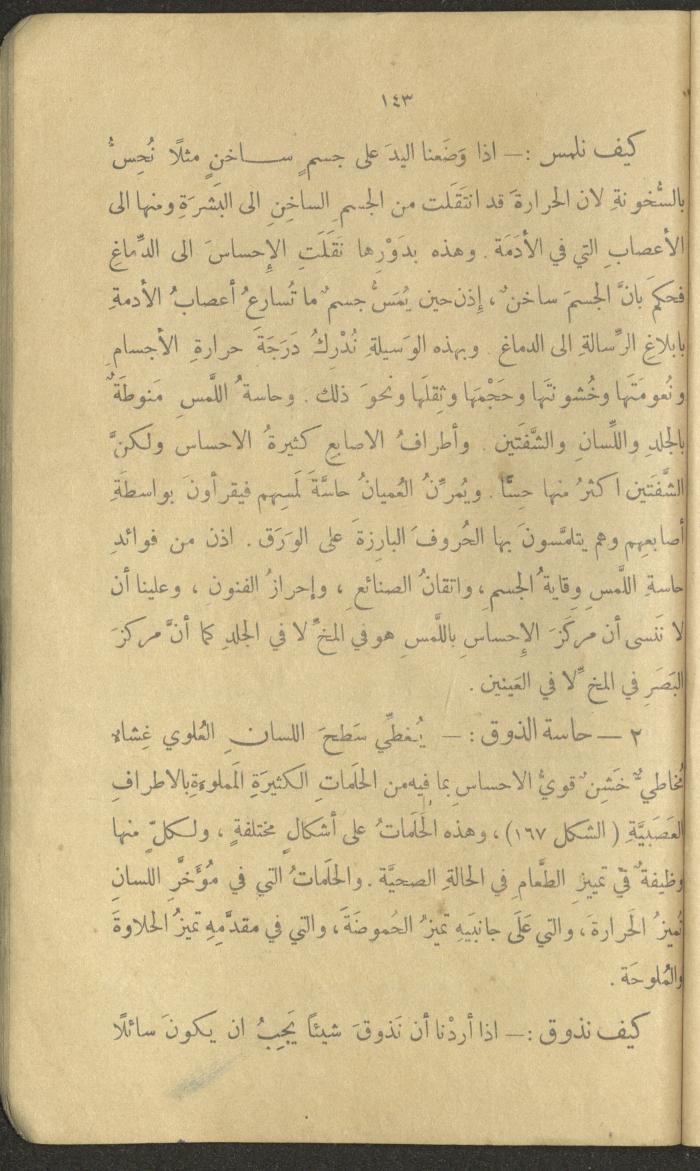 ١٤٣
كيف نلمس :— اذا وَضَعنا اليدَ على جسمٍ ساخنٍ مثلًا نُحِسُّ
بالسُّخونةِ لان الحرارةَ قد انتَقَلت من الجسمِ الساخِنِ الى البَشرَةِ ومنها الى
الأعصابِ التي في الأَدَمَة . وهذه بدَوْرِها نَقَلَتِ الإِحساسَ الى الدِّماغِ
فحكمَ بانَّ الجسمَ ساخنٌ ، إِذن حين يُمَسُّ جسمٌ ما تُسارعُ أعصابُ الأدمةِ
بابلاغِ الرِّسالةِ الى الدماغ . وبهذه الوَسيلةِ نُدْرِكُ دَرَجَةَ حرارةِ الأجسامِ
ونُعومَتَها وخُشونتَها وحَجْمَها وثِقلَها ونحوَ ذلك . وحاسةُ اللَّمسِ مَنوطَةٌ
بالجلدِ واللِّسانِ والشَّفَتَين . وأطرافُ الاصابعِ كثيرةُ الاحساسِ ولكنَّ
الشَّفَتَين اكثرُ منها حِسًّا . ويُمرِّنُ العُميانُ حاسَّةَ لَمسِهم فيقرأونَ بواسطَةِ
أصابعِهم وهم يتلمَّسونَ بها الحُروفَ البارِزةَ على الوَرَق . اذن من فوائدِ
حاسةِ اللَّمسِ وِقايةُ الجسمِ ، واتقانُ الصنائعِ ، وإحرازُ الفنونِ ، وعلينا أن
لا نَنسى أن مركَزَ الإِحساسِ باللَّمسِ هو في المخِّ لا في الجلدِ كما أنَّ مركزَ
البَصَرِ في المخِّ لا في العَينين .
٢ — حاسة الذوق :— يُغطِّي سَطحَ اللسانِ العُلوي غِشاء
مُخاطيٌّ خَشِنٌ قويُّ الاحساسِ بما فيه من الحلَماتِ الكثيرَةِ المملوءةِ بالاطرافِ
العَصَبيَّةِ ( الشكل ١٦٧ ) ، وهذه الحَلَماتُ على أشكالٍ مختلفةٍ ، ولكلّ منها
وظيفةٌ في تمييزِ الطَّعامِ في الحالةِ الصحيَّة . والحلَماتُ التي في مُؤَخَّرِ اللسانِ
تُميزُ الحَرارةَ ، والتي عَلَى جانبَيهِ تميزُ الحُموضَةَ ، والتي في مقدَّمِهِ تميزُ الحلاوةَ
والمُلوحَة .
كيف نذوق :— اذا أردْنا أن نَذوقَ شيئاً يَجِبُ ان يكونَ سائلًا